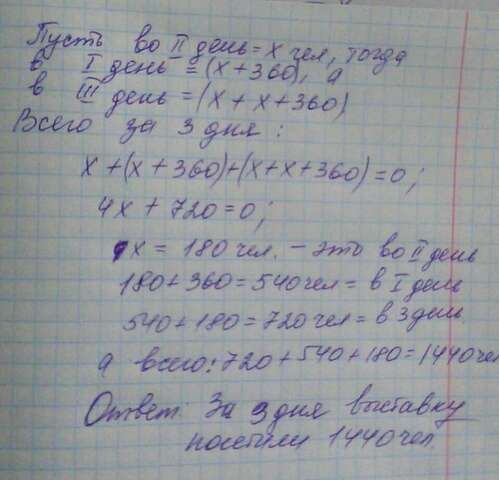 Пусть во II день = x чел, тогда
в I день = (x+360), а
в III день = (x+x+360)
Всего за 3 дня:
x+(x+360)+(x+x+360)=0;
4x+720=0;
x = 180 чел. – это во II день
180+360=540 чел = в I день
540+180=720 чел = в 3 день
а всего: 720+540+180=1440 чел
Ответ: За 3 дня выставку
посетили 1440 чел